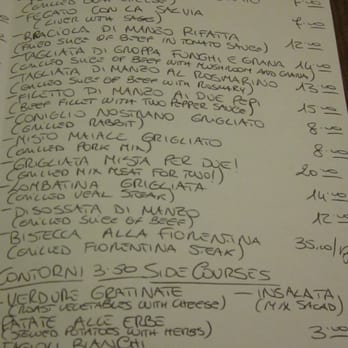 - FEGATO CON LA SALVIA
(LIVER WITH SAGE)
- BRACIOLA DI MANZO RIFATTA
(FRIED SLICE OF BEEF IN TOMATO SAUCE) 12.00
- TAGLIATA DI GROPPA FUNGHI E GRANA
(GRILLED SLICE OF BEEF WITH MUSHROOM AND GRANA) 14.00
- TAGLIATA DI MANZO AL ROSMARINO
(GRILLED SLICE OF BEEF WITH ROSMARY) 13.00
- FILETTO DI MANZO AI DUE PEPI
(BEEF FILLET WITH TWO PEPPER SAUCE) 15.00
- CONIGLIO NOSTRANO GRIGLIATO
(GRILLED RABBIT) 8.00
- MISTO MAIALE GRIGLIATO
(GRILLED PORK MIX) 8.00
- GRIGLIATA MISTA PER DUE!
(GRILLED MIX MEAT FOR TWO!) 20.00
- LOMBATINA GRIGLIATA
(GRILLED VEAL STEAK) 14.00
- DISOSSATA DI MANZO
(GRILLED SLICE OF BEEF) 12.00
- BISTECCA ALLA FIORENTINA
(GRILLED FIORENTINA STEAK) 35.00/
CONTORNI 3.50 SIDE COURSES
- VERDURE GRATINATE - INSALATA
(ROAST VEGETABLES WITH CHEESE) (MIX SALAD)
PATATE ALLE ERBE
(STEWED POTATOES WITH HERBS) 3.00
FAGIOLI BIANCHI